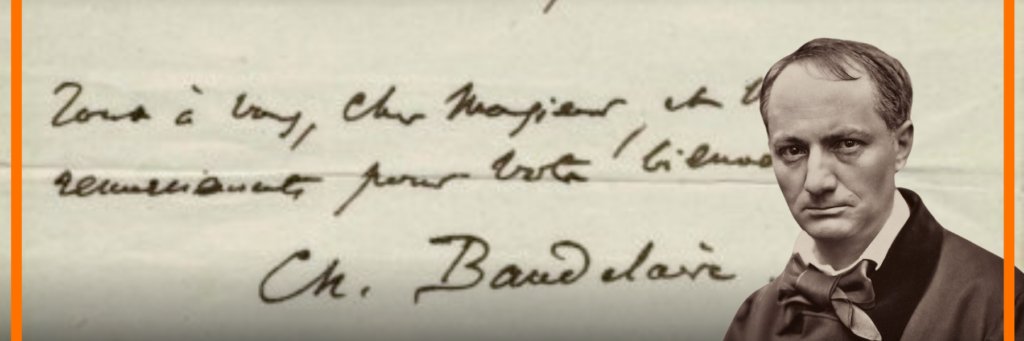 Tout à vous, cher Monsieur, et
remerciements pour votre bienve
Ch. Baudelaire.